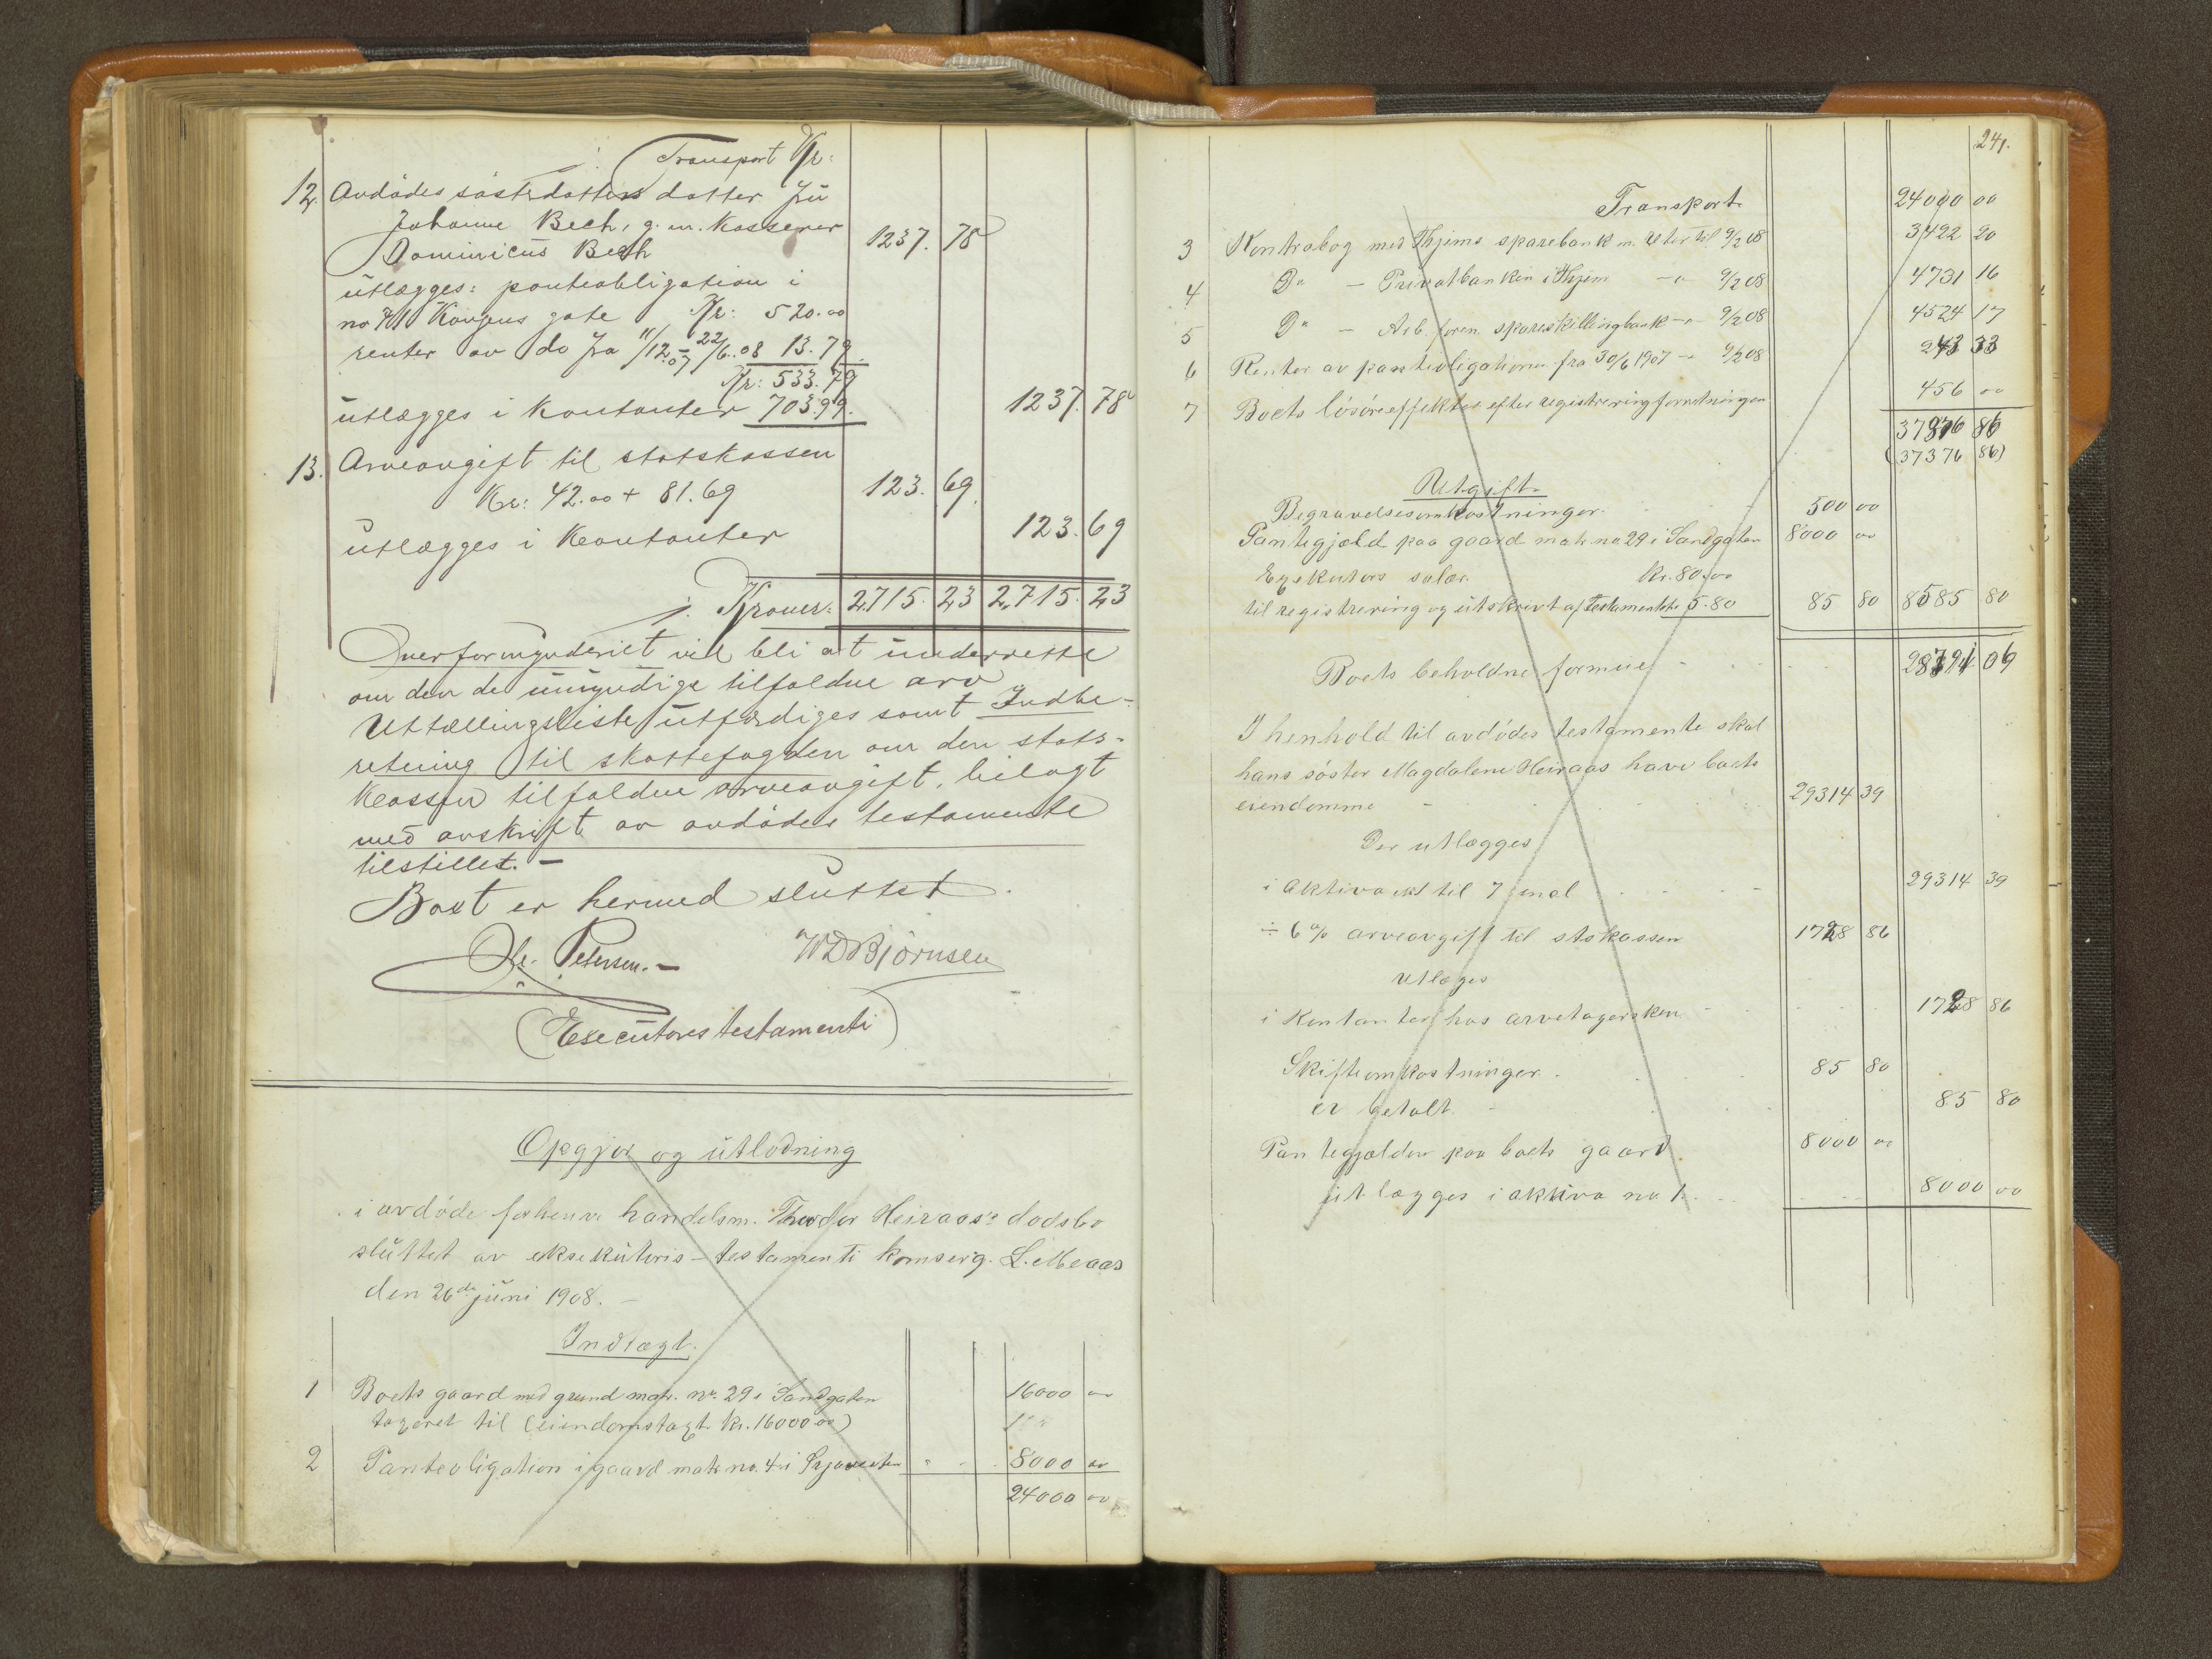 Transport Kr:
12. Avdødes søsterdatters datter fru
Johanne Bech, g. m. kasserer
Dominicus Bech 1237. 78
utlægges: panteobligation i
no 71 Kongens gate Kr: 520.00
renter av do fra 11/12.07 - 22/6.08 13.79.
Kr: 533.79
utlægges i kontanter 703.99. 1237. 78
13. Arveavgift til statskassen
Kr: 42.00 + 81.69 123. 69
utlægges i kontanter 123. 69
Kroner: 2,715. 23 2,715. 23
Overformynderiet vil bli at underrette
om den de umyndige tilfaldne arv
Uttællingsliste utfærdiges samt Indbe-
retning til skattefogden om den stats-
kassen tilfaldne arveavgift, bilagt
med avskrift av avdødes testamente
tilstillet. -
Boet er hermed sluttet.
Petersen. - W D Bjørnsen
(Executores testamenti)
Opgjør og utlodning
i avdøde forhenv. handelsm. Theodor Heiraas's dødsbo
sluttet av eksekutoris-testamenti L. Meaas
den 26de juni 1908. -
Indtægt.
1 Boets gaard med grund matr. no. 29 i Sandgaten 16000 00
taxeret til (eiendomstaxt Kr. 16000.00)
2 Panteobligation i gaard matr. no. 4 i 8000 00
24000 00
241.
Transport 24000 00
3 Kontrabog med Thjems sparebank m. renter til 9/2 08 3422 20
4 Do - Privatbanken i Thjem -"- 9/2 08 4731 16
5 Do - Arb. foren. spareskillingbank -"- 9/2 08 4524 17
6 Renter av panteobligationen fra 30/6 1907 -"- 9/2 08 243 33
7 Boets løsøreeffekter efter registreringforretningen 456 00
37376 86
(37376 86)
Utgift.
Begravelsesomkostninger. 500 00
Pantegjæld paa gaard matr no 29 i Sandgaten 8000 00
Exekutors salær. kr. 80.00
til registrering og utskrivt af testamentet 5.80 85 80 8585 80
Boets beholdne formue 28791 06
I henhold til avdødes testamente skal
hans søster Magdalene Heiraas have boets
eiendomme 29314 39
Der utlægges
i aktiva til 7 incl 29314 39
÷ 6 % arveavgift til stskassen 1728 86
utlæges
i Kontanter hos arvetagersken 1728 86
Skifteomkostninger. 85 80
er betalt 85 80
Pantegjælden paa boets gaard. 8000 00
utlægges i aktiva no 1. 8000 00